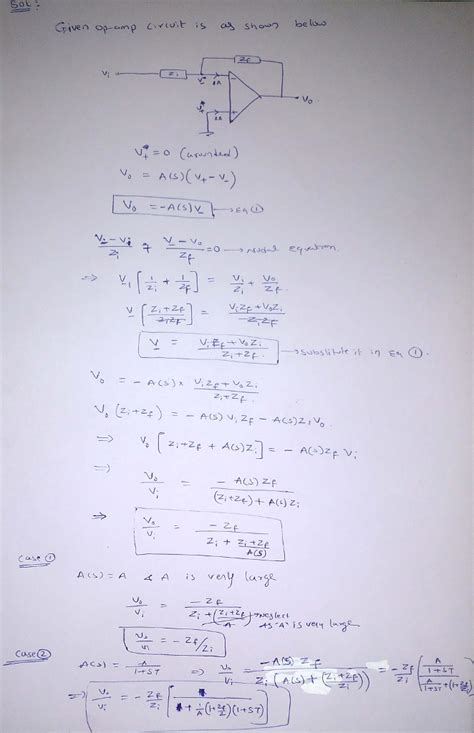 Sol:
Given op-amp circuit is as shown below
Zf
Vi Zi V- Vo
V+ = 0 (Grounded)
Vo = A(s)(V+ - V-)
Vo = -A(s)V- → Eq ①
(V- - Vi)/Zi + (V- - Vo)/Zf = 0 → nodal equation.
⇒ V- [1/Zi + 1/Zf] = Vi/Zi + Vo/Zf
V- [(Zi+Zf)/ZiZf] = (ViZf+VoZi)/ZiZf
V- = (ViZf+VoZi)/(Zi+Zf) → substitute it in Eq ①.
Vo = -A(s) × (ViZf+VoZi)/(Zi+Zf)
Vo (Zi+Zf) = -A(s) Vi Zf - A(s) Zi Vo
⇒ Vo [Zi+Zf + A(s)Zi] = -A(s)Zf Vi
⇒ Vo/Vi = -A(s) Zf/((Zi+Zf) + A(s) Zi)
⇒ Vo/Vi = -Zf/(Zi + (Zi+Zf)/A(s))
Case ①
A(s) = A & A is very large
Vo/Vi = -Zf/(Zi + (Zi+Zf)/A) → neglect
As "A" is very large
Vo/Vi = -Zf/Zi
Case ②
A(s) = A/(1+ST) ⇒ Vo/Vi = -A(s) Zf/(Zi (A(s) + (Zi+Zf)/Zi)) = -Zf/Zi [(A/(1+ST))/(A/(1+ST) + (1+Zf/Zi))]
⇒ Vo/Vi = -Zf/Zi [1/(1 + 1/A (1+Zf/Zi)(1+ST))]